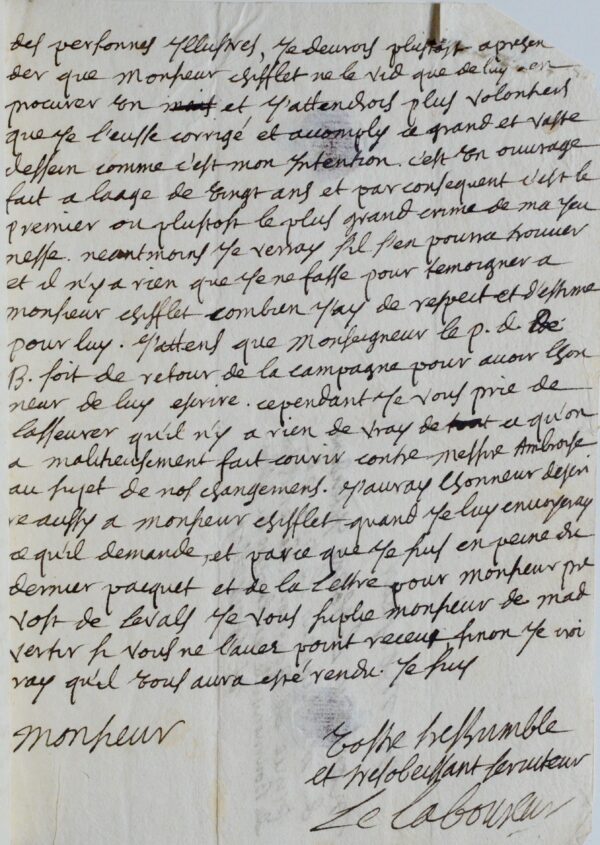 des personnes Illustres, Je devrois plustost apreen
der que Monsieur chifflet ne le vid que de luy en
procurer Un et J'attendrois plus volontiers
que Je l'eusse corrigé et accomply ce grand et vaste
dessein comme c'est mon Intention. c'est Un ouvrage
fait a laage de Vingt ans et par consequent c'est le
premier ou plustost le plus grand crime de ma Jeu
nesse. neantmoins Je verray s'il s'en pourra trouver
et il n'y a rien que Je ne fasse pour temoigner a
monsieur chifflet combien J'ay de respect et d'estime
pour luy. J'attens que Monseigneur le p. d.
B. soit de retour de la campagne pour avoir lhon
neur de luy escrire. cependant Je vous prie de
lasseurer qu'il n'y a rien de vray de ce qu'on
a malitieusement fait courir contre Messire Ambroise
au sujet de nos changemens. J'auray lhonneur descri
re aussy a monsieur chifflet quand Je luy envoyeray
ce qu'il demande, et parce que Je suis en peine du
dernier pacquet et de la lettre pour monsieur pre
vost de Levals Je vous suplie monsieur de mad
vertir si vous ne l'avez point receu, sinon Je croi
ray qu'il Vous aura esté rendu. Je suis
Monsieur
Vostre tres humble
et tres obeissant serviteur
Le Laboureur